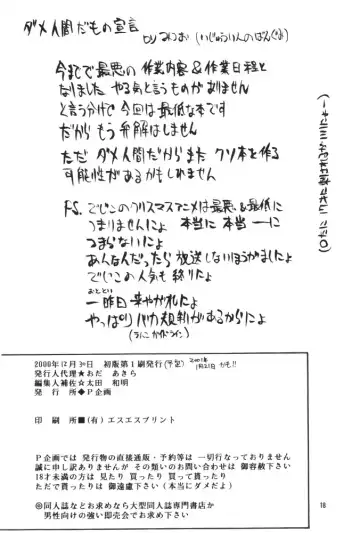 ダメ人間だもの宣言
今まで最悪の作業内容&作業日程と
なりました やる気と言うものがありません
と言う分けで 今回は最低な本です
だから もう弁解はしません
ただ ダメ人間だからまた クソ本を作る
可能性があるかもしれません
P.S. でじこのクリスマスアニメは最悪&最低に
つまりませんにょ 本当に 本当ーに
つまらないにょ
あんなんだったら 放送しないほうがましにょ
でじこの人気も 終りにょ
おととい
一昨日 来やがれにょ
やっぱり バカ規制があるからにょ
2000年12月30日 初版第1刷発行(予定) 2001年
1月21日 かも!!
発行人代理★おだ あきら
編集人補佐☆太田 和明
発 行 所◆P企画
印 刷 所■(有)エスエスプリント
P企画では 発行物の直接通販・予約等は 一切行なっておりません
誠に申し訳ありませんが その類いのお問い合わせは 御容赦下さい
18才未満の方は 見たり 買ったり 買って貰ったり
ただで貰ったりは 御遠慮下さい(本当にダメだよ)
◎同人誌などお求めなら大型同人誌専門書店か
男性向けの強い即売会でお求め下さい
18